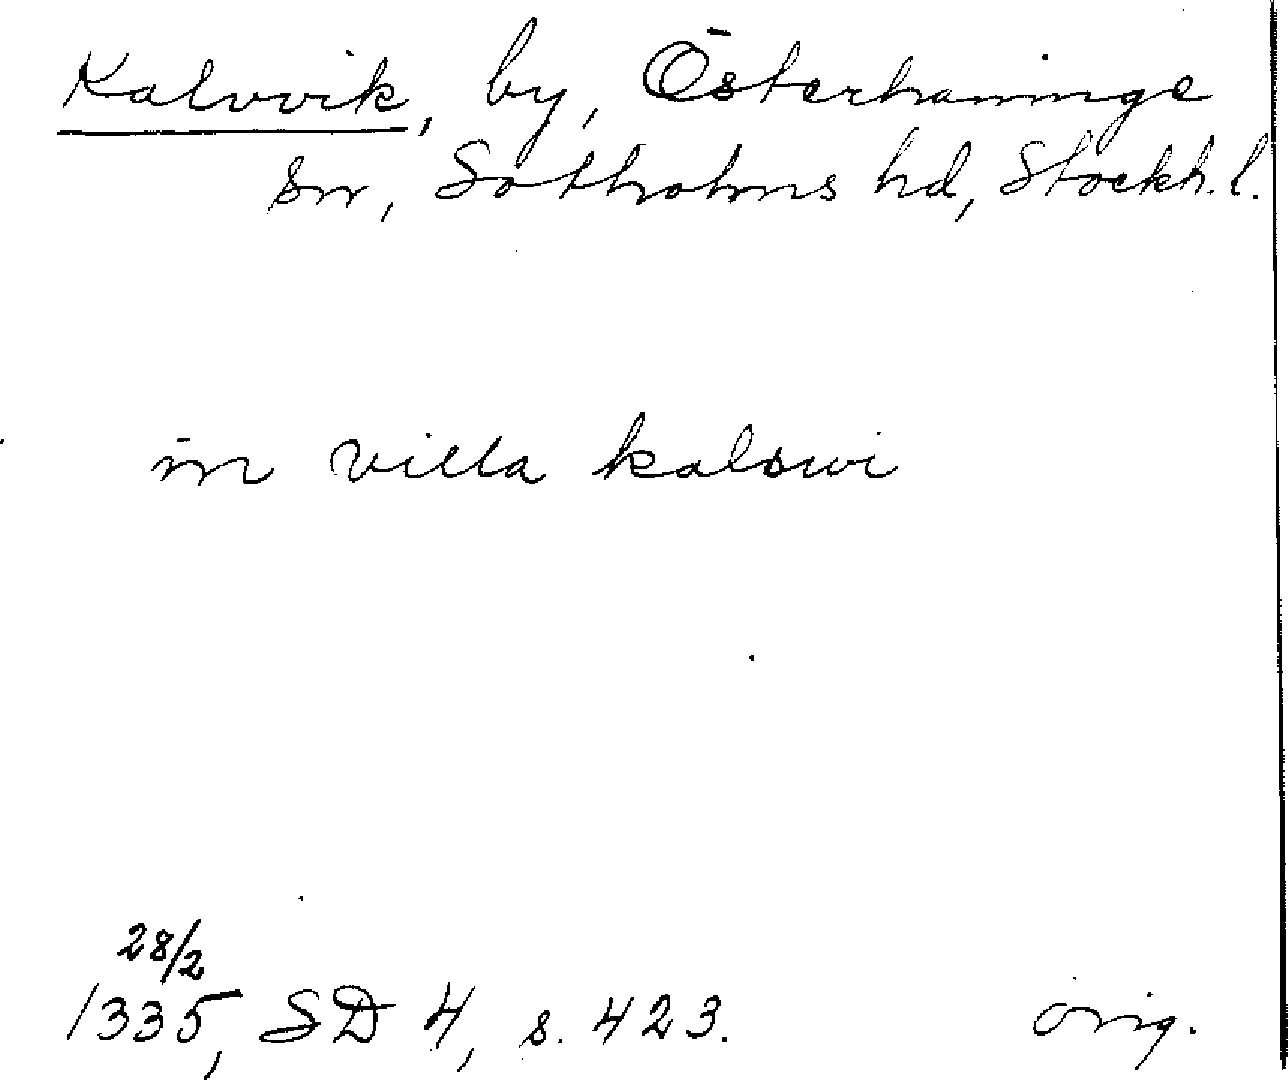 Kalvvik, by, Österhaninge
sn, Sotholms hd, Stockh. l.
in villa kalswi
28/2
1335, SD 4, s. 423. orig.